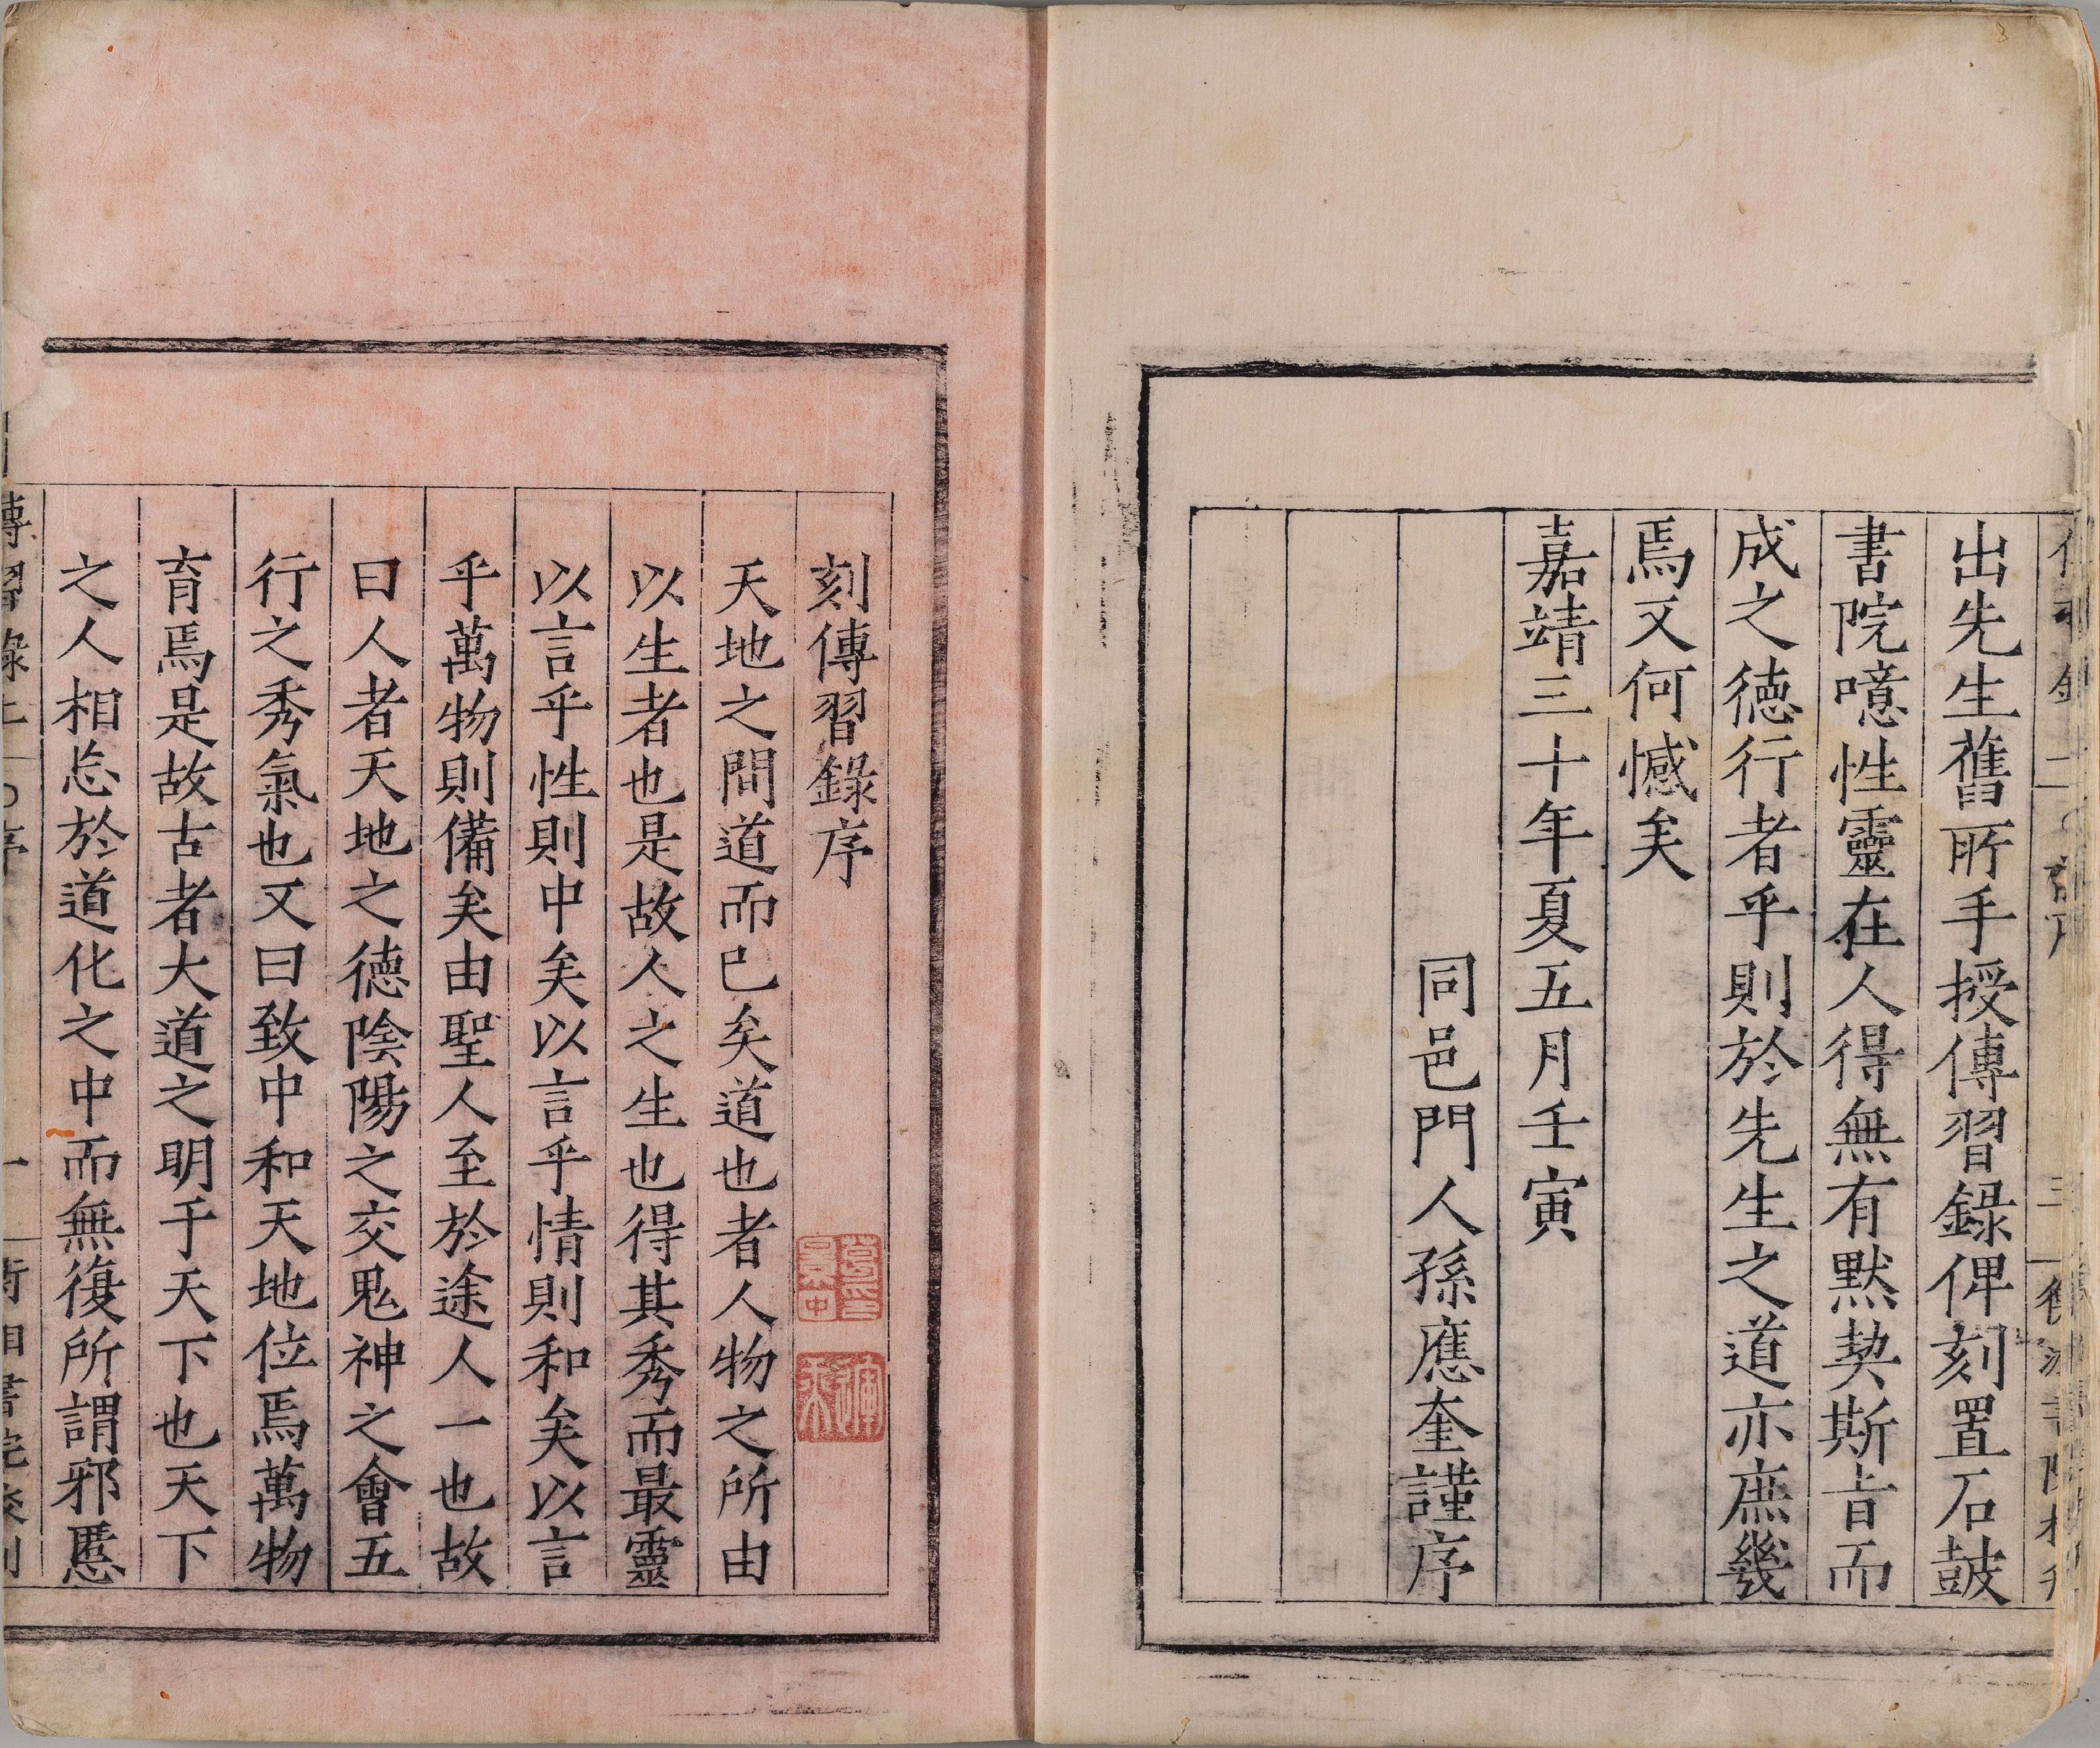 出先生舊所手授傳習錄俾刻置石鼓
書院噫性靈在人得無有默契斯旨而
成之德行者乎則於先生之道亦庶幾
焉又何憾矣
嘉靖三十年夏五月壬寅
同邑門人孫應奎謹序
刻傳習錄序
天地之間道而已矣道也者人物之所由
以生者也是故人之生也得其秀而最靈
以言乎性則中矣以言乎情則和矣以言
乎萬物則備矣由聖人至於途人一也故
曰人者天地之德陰陽之交鬼神之會五
行之秀氣也又曰致中和天地位焉萬物
育焉是故古者大道之明于天下也天下
之人相忘於道化之中而無復所謂邪慝
傳習錄上 序 一